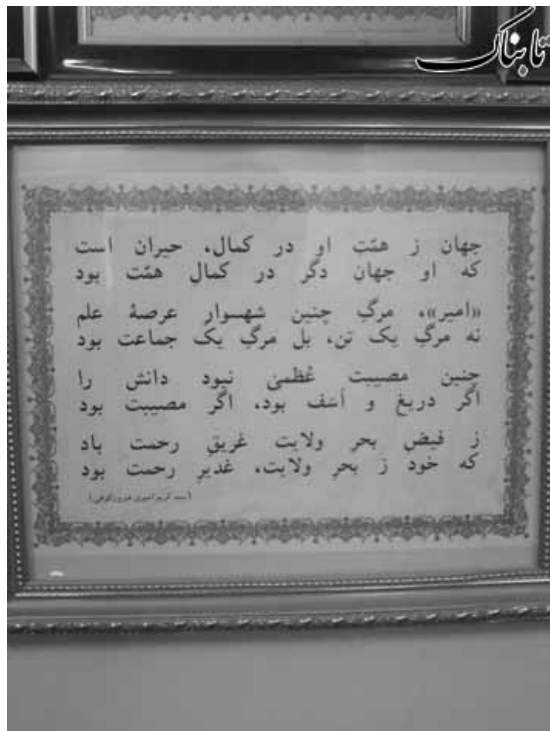 تابناک
جهان ز همّتِ او در کمال، حیران است
که او جهانِ دگر در کمالِ همّت بود
«امیر»، مرگِ چنین شهسوار عرصهٔ علم
نه مرگِ یک تن، بل مرگِ یک جماعت بود
چنین مصیبت عُظمیٰ نبود دانش را
اگر دریغ و اَسَف بود، اگر مصیبت بود
ز فیضِ بحرِ ولایت غریقِ رحمت باد
که خود ز بحرِ ولایت، غدیرِ رحمت بود
(سید کریم امیری فیروزکوهی)